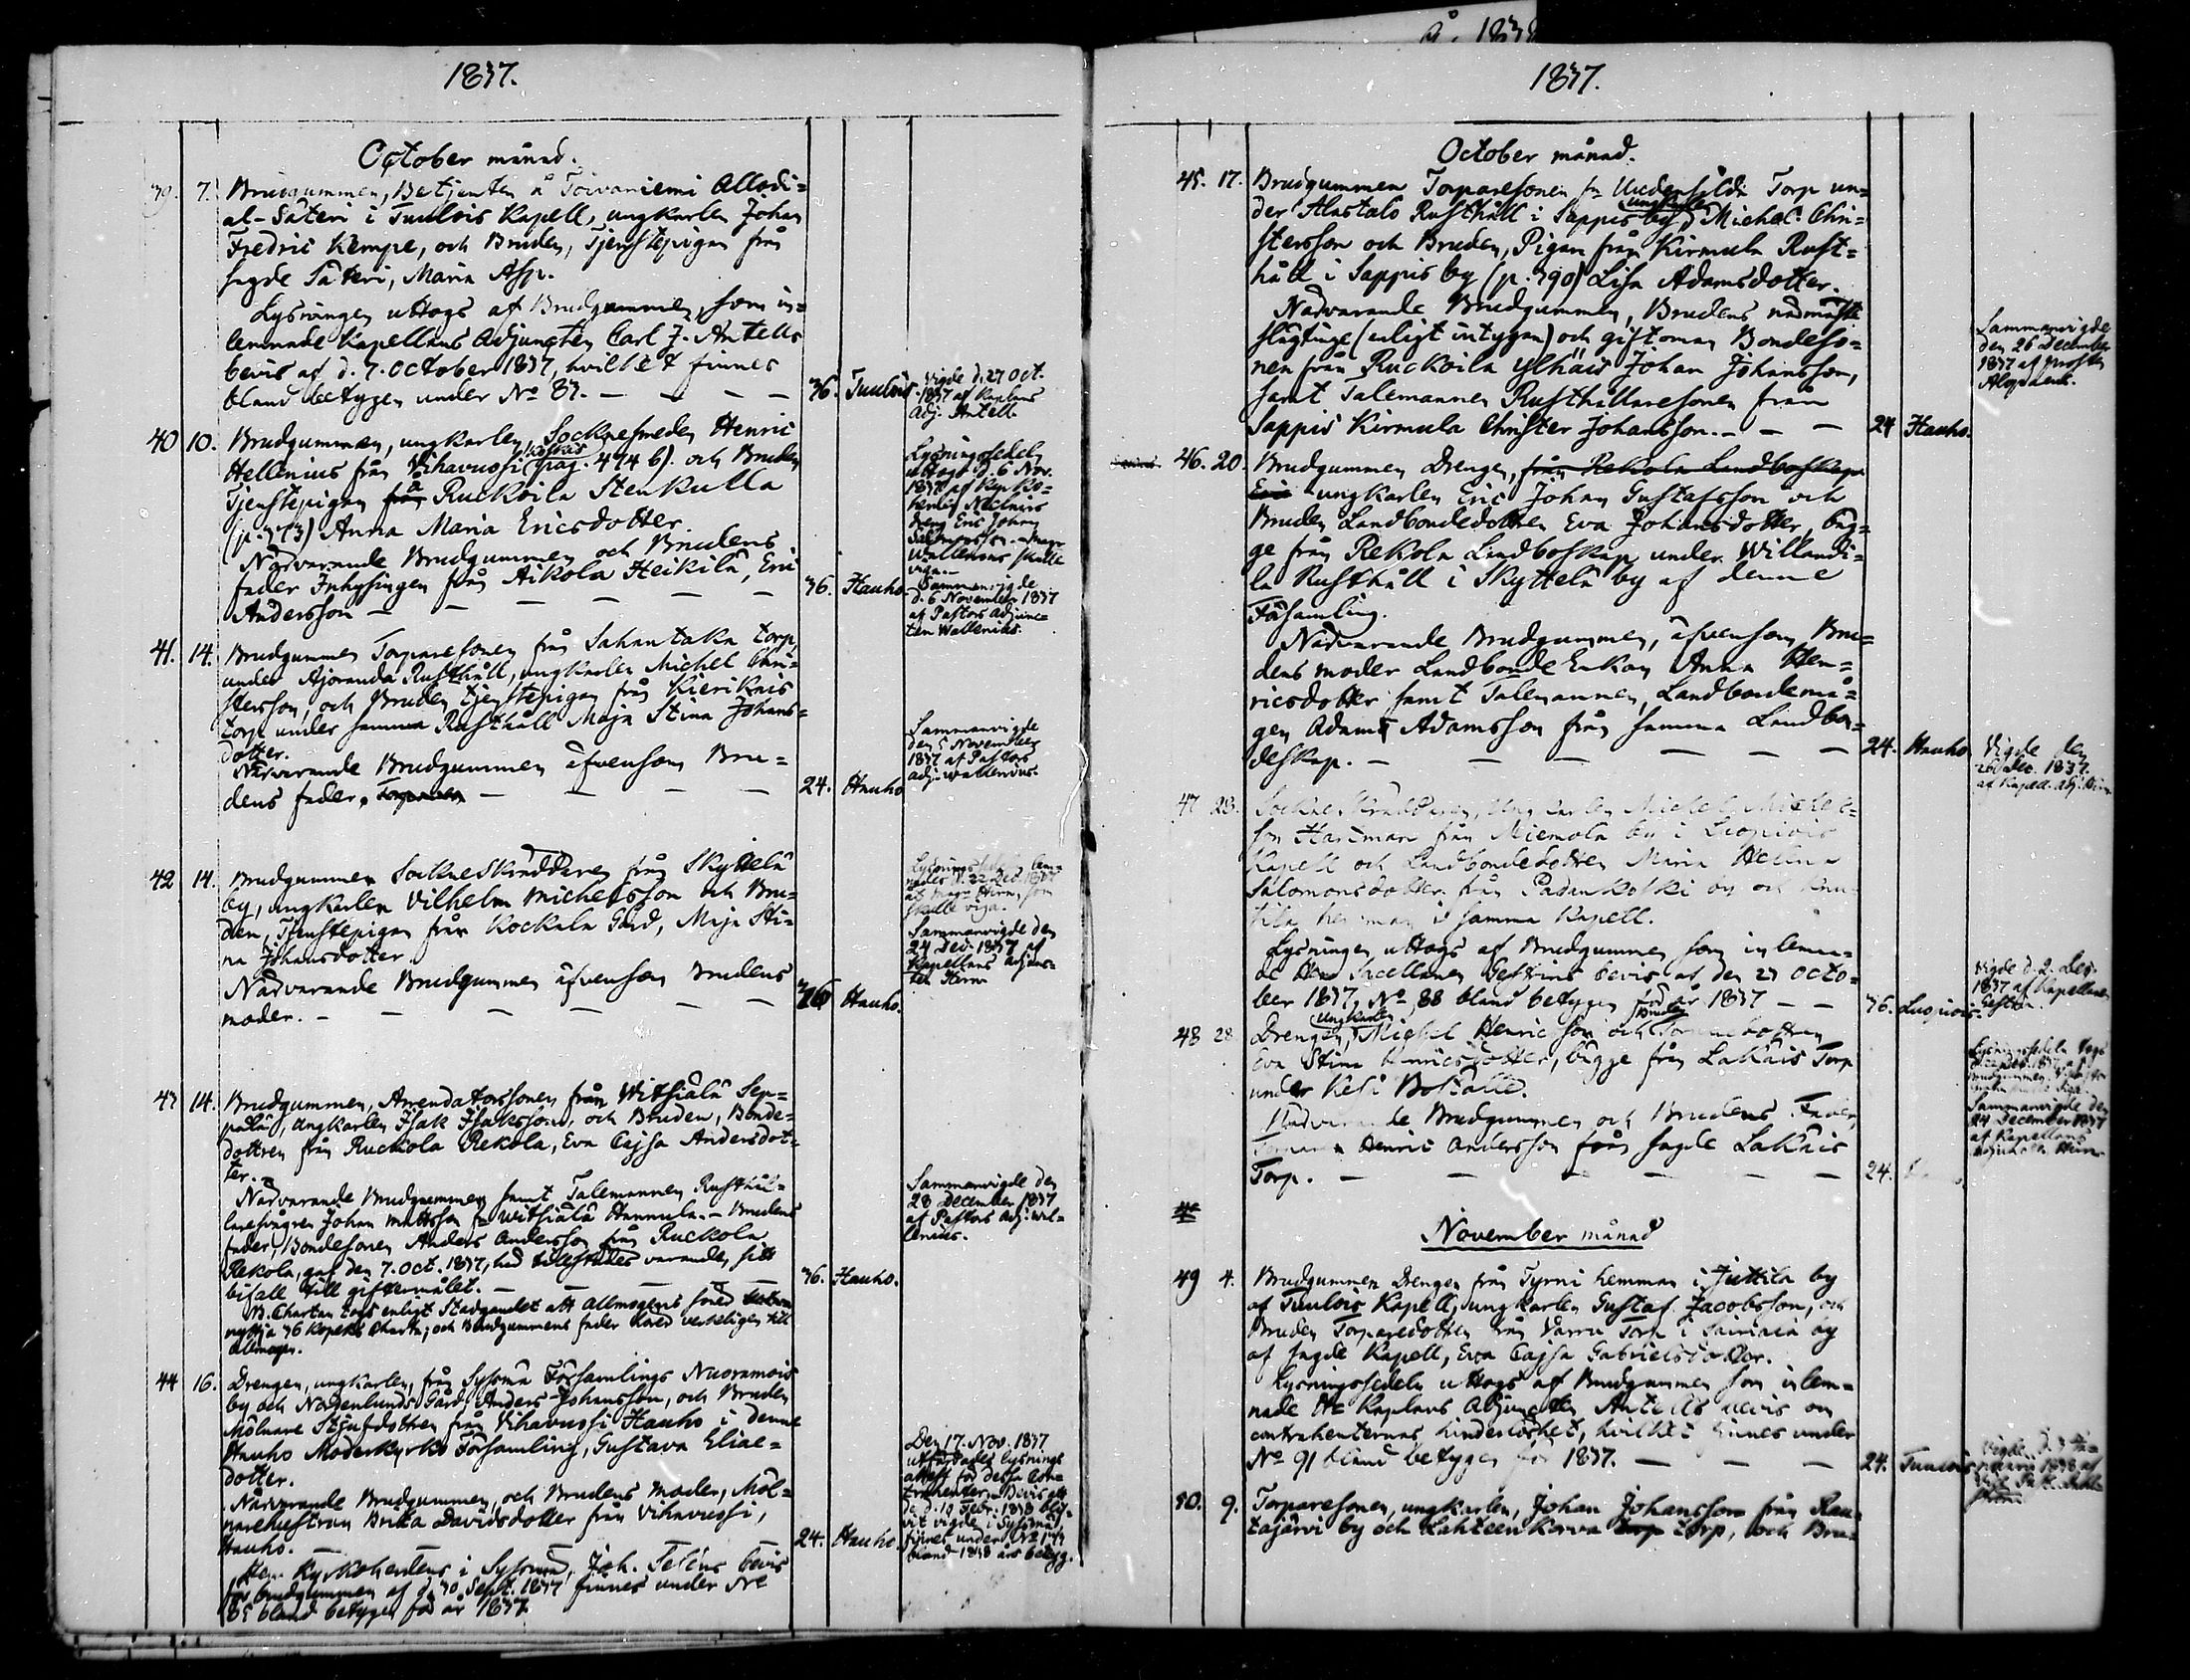 1837.
October månad.
39. 7. Brudgummen, Betjenten å Toivaniemi Allodi=
al-Säteri i Tuulois Kapell, ungkarlen Johan
Fredric Kempe, och Bruden, Tjenstepigan från
sagde Säteri, Maria Asp.
Lysningen uttogs af Brudgummen, som in=
lemnade Kapellans Adjuncten Carl J. Antells
bevis af d. 7. October 1837, hvilket finnes
bland betygen under No 87. — — — —
36. Tuulois.
Vigde d. 27 Oct.
1837 af Kaplans
Adj. Antell.
40 10. Brudgummen, ungkarlen, Socknesmeden Henric
Hellenius från Vihavuosi Koskis (pag. 474 b). och Bruden
Tjenstepigan från å Ruckoila Stenkulla
(p. 373) Anna Maria Ericsdotter.
Närvarande Brudgummen och Brudens
fader Inhysingen från Aikola Heikilä, Eric
Andersson — — — — — —
36. Hauho.
Lysningssedeln
uttogs d. 6 Nov.
1837 af
dreng Eric Johan
Salomonsson.
Wallenius skulle
viga.—
Sammanvigde
d. 6 November 1837
af Pastors Adjunc=
ten Wallenius.
41. 14. Brudgummen Torparesonen från Sahantaka torp
under Ajoranda Rusthåll, ungkarlen Michel Chri=
stersson, och Bruden tjenstepigan från Kierikais
torp under samma Rusthåll Maja Stina Johans=
dotter.
Närvarande Brudgummen äfvensom Bru=
dens fader. — — — —
24. Hauho
Sammanvigde
den 5 November
1837 af Pastors
adj. Wallenius.
42 14. Brudgummen Sockneskräddaren från Skyttelä
by, ungkarlen Vilhelm Michelsson och Bru=
den, Tjenstepigan från Kockala Gård, Maja Sti=
na Johansdotter.
Närvarande Brudgummen äfvensom Brudens
moder. — — — — — —
36 Hauho.
skulle viga.
Sammanvigde den
24 Dec. 1837 af
Kapellans adjunc=
ten Hirn
43 14. Brudgummen, Arrendatorssonen från Witsiälä Sep=
pälä, Ungkarlen Isak Isaksson, och Bruden, Bonde=
dottren från Ruckola Rekola, Eva Cajsa Andersdot=
ter.
Närvarande Brudgummen samt Talemannen Rusthål=
laresvågren Johan Mattsson fr Witsiälä Hannula.— Brudens
fader, Bondesonen Anders Andersson från Ruckola
Rekola, gaf den 7. Oct. 1837, här tillstädes varande, sitt
bifall till giftermålet. — — — —
NB. Chartan togs enligt Stadgandet att Allmogens söner
nyttja 36 Kopeks Charta; och Brudgummens fader hörer verkeligen till
Allmogen.
36. Hauho.
Sammanvigde den
28 December 1837
af Pastors adj. Wal=
lenius.
44 16. Drengen, ungkarlen, från Sysmä Församlings Nuoramois
by och Nordenlunds Gård, Anders Johansson, och Bruden
Mölnare Stjufdottren från Vihavuosi Hauho i denne
Hauho Moderkyrko Församling, Gustava Eliae=
dotter.
Närvarande Brudgummen, och Brudens Moder, Möl=
narehustrun Brita Davidsdotter från Vihavuosi,
Hauho. — — — —
Herr Kyrkoherdens i Sysmä, Joh. Teléns bevis
för brudgummen af d. 30 Sept. 1837 finnes under No
85 bland betygen för år 1837.
24. Hauho.
Den 17. Nov. 1837
utfärdades lysnings
attest för dessa Con=
trahenter.— Bevis att
de d. 10 Febr. 1838 blif=
vit vigde i Sysmä,
finnes under No
bland 1838 års betyg.
1837.
October månad.
45. 17. Brudgummen Torparesonen fr Uudenkÿlän Torp un=
der Alastalo Rusthåll i Sappis by, ungkarlen Michel Chri=
stersson och Bruden, Pigan från Kirmula Rust=
håll i Sappis by (p. 390) Lisa Adamsdotter.
Närvarande Brudgummen, Brudens närmaste
slägtinge (enligt intygan) och giftoman Bondeso=
nen från Ruckoila Ylhäis Johan Johansson,
samt Talemannen Rusthållaresonen från
Sappis Kirmula Christer Johansson. — — —
24 Hauho.
Sammanvigde
den 26 December
1837 af Prosten
Alopaeus.
46. 20. Brudgummen Drengen, från Rekola Landboskap
Eric ungkarlen Eric Johan Gustafsson och
Bruden Landbondedottren Eva Johansdotter, bäg=
ge från Rekola Landboskap under Willandi=
la Rusthåll i Skyttelä by af denne
Församling.
Närvarande Brudgummen, äfvensom Bru=
dens moder Landbonde Enkan Anna Hen=
ricsdotter samt Talemannen, Landbondemå=
gen Adam Adamsson från samma Landbon=
deskap. — — — — —
24. Hauho
Vigde den
26 Dec. 1837.
af Kapell. adj. Hirn
47 23. Sockne Skräddaren, Ungkarlen Michel Michels=
son Hartman från Miemola by i Luopiois
Kapell och Landbondedottren Maria Helena
Salomonsdotter från Padankoski by och
hemman i samma Kapell.
Lysningen uttogs af Brudgummen som inlemna=
de Herr Sacellanen Gestrins bevis af den 21 Octo=
ber 1837, No 88 bland betygen för år 1837 — —
36. Luopiois.
Vigde d. 2. Dec.
1837 af Kapellanen
Gestrin.
48 28. Drengen, Ungkarlen Michel Henricsson och Bruden Torparedottren
Eva Stina Henricsdotter, bägge från Lakais Torp
under Keso Boställe.
Närvarande Brudgummen och Brudens Fader,
Torparen Henric Andersson från sagde Lakais
Torp. — — — — — —
24.
Sammanvigde den
24 December 1837
af Kapellans
adjuncten Hirn
November månad
49 4. Brudgummen Drengen från Tyrni hemman i Juttila by
af Tuulois Kapell, ungkarlen Gustaf Jacobsson, och
Bruden Torparedottren från Varra Torp i Sairiala by
af sagde Kapell, Eva Cajsa Gabrielsdotter.
Lysningssedeln uttogs af Brudgummen som inlem=
nade Hr Kaplans Adjuncten Antells bevis om
contrahenternas hinderlöshet, hvilket finnes under
No 91 bland betygen för 1837. — — —
24. Tuulois
50. 9. Torparesonen, ungkarlen, Johan Johansson från Rau=
tajärvi by och Lahteenkorva torp torp, och Bru=